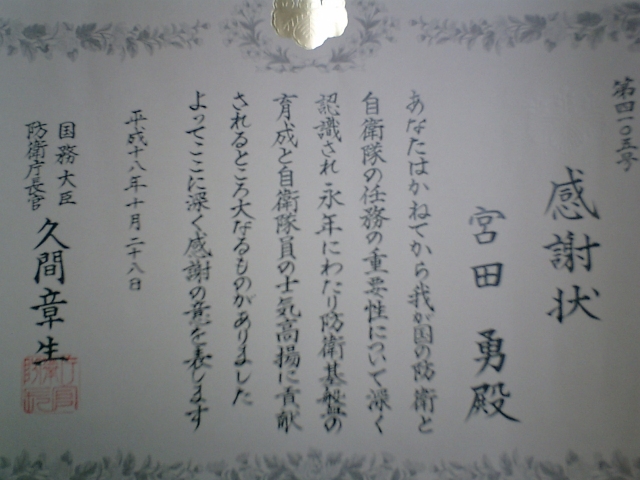 第四一〇五号
感謝状
宮田 勇殿
あなたはかねてから我が国の防衛と
自衛隊の任務の重要性について深く
認識され永年にわたり防衛基盤の
育成と自衛隊員の士気高揚に貢献
されるところ大なるものがありました
よってここに深く感謝の意を表します
平成十八年十月二十八日
国務大臣
防衛庁長官
久間章生